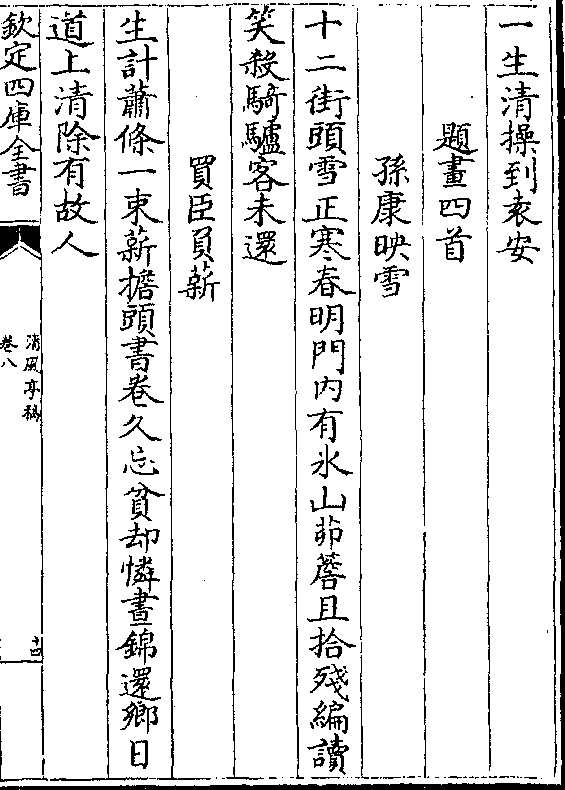 一生清操到袁安
題畫四首
孫康映雪
十二街頭雪正寒春明門内有氷山茆簷且拾殘編讀
笑殺騎驢客未還
買臣負薪
生計蕭條一束薪擔頭書卷久忘貧却憐晝錦還鄉日
道上清除有故人
欽定四庫全書
清風亭稿
卷八
十四